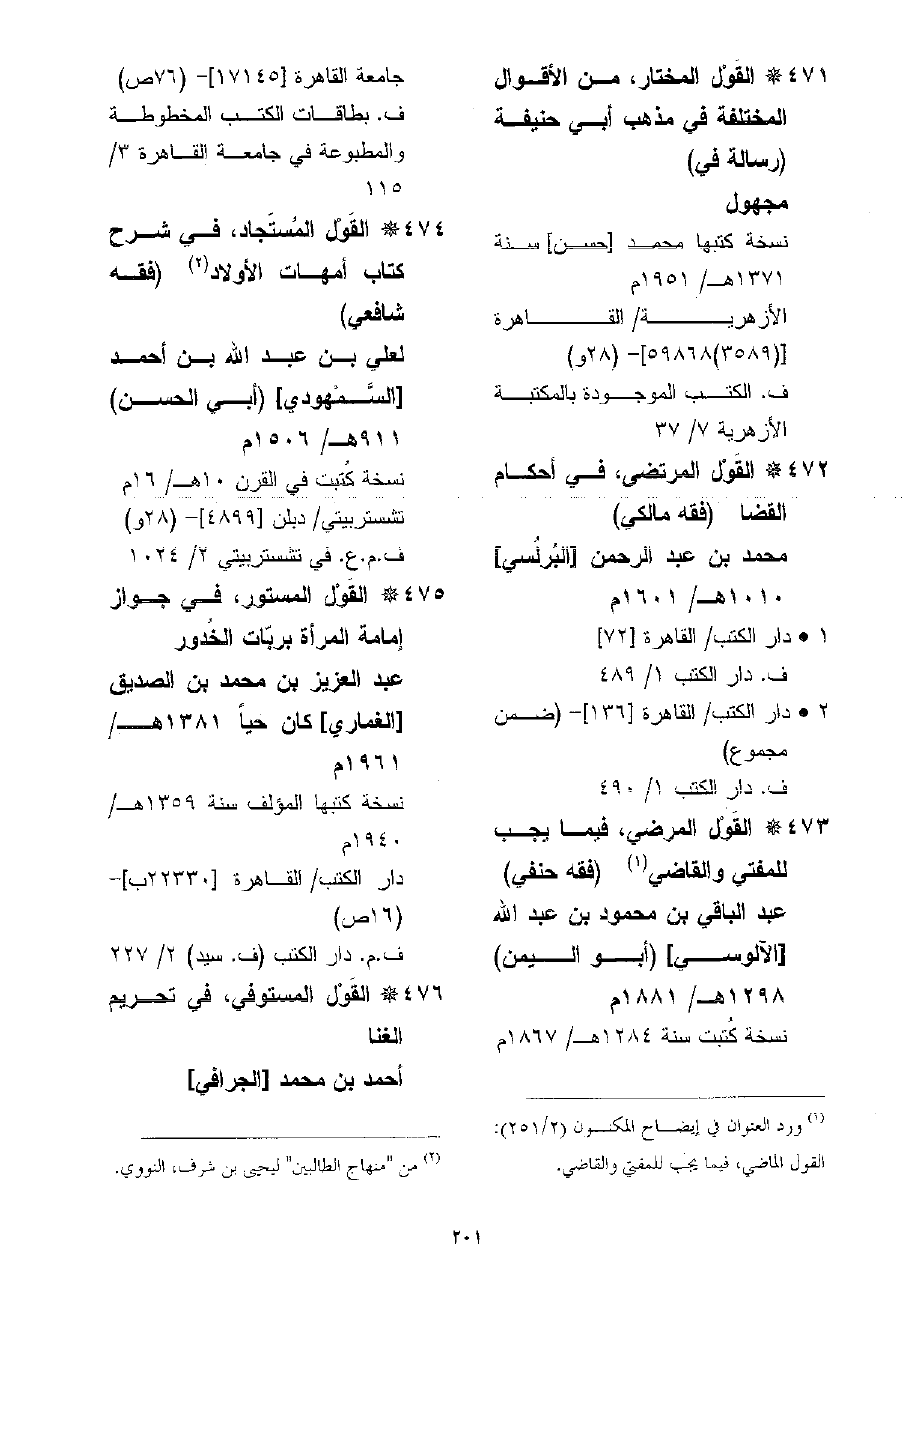 ٤٧١ ❊ القَوْل المختار، من الأقوال
المختلفة في مذهب أبي حنيفة
(رسالة في)
مجهول
نسخة كتبها محمد [حسن] سنة
١٣٧١هـ/ ١٩٥١م
الأزهرية/ القاهرة
[(٣٥٨٩)٥٩٨٦٨]- (٢٨و)
ف. الكتب الموجودة بالمكتبة
الأزهرية ٧/ ٣٧
٤٧٢ ❊ القَوْل المرتضي، في أحكام
القضا (فقه مالكي)
محمد بن عبد الرحمن [البُرلُسي]
١٠١٠هـ/ ١٦٠١م
١ • دار الكتب/ القاهرة [٧٢]
ف. دار الكتب ١/ ٤٨٩
٢ • دار الكتب/ القاهرة [١٣٦]- (ضمن
مجموع)
ف. دار الكتب ١/ ٤٩٠
٤٧٣ ❊ القَوْل المرضي، فيما يجب
للمفتي والقاضي(١) (فقه حنفي)
عبد الباقي بن محمود بن عبد الله
[الآلوسي] (أبو اليمن)
١٢٩٨هـ/ ١٨٨١م
نسخة كُتبت سنة ١٢٨٤هـ/ ١٨٦٧م
(١) ورد العنوان في إيضاح المكنون (٢٥١/٢):
القول الماضي، فيما يجب للمفتي والقاضي.
جامعة القاهرة [١٧١٤٥]- (٧٦ص)
ف. بطاقات الكتب المخطوطة
والمطبوعة في جامعة القاهرة ٣/
١١٥
٤٧٤ ❊ القَوْل المُستَجاد، في شرح
كتاب أمهات الأولاد(٢) (فقه
شافعي)
لعلي بن عبد الله بن أحمد
[السَّمْهودي] (أبي الحسن)
٩١١هـ/ ١٥٠٦م
نسخة كُتبت في القرن ١٠هـ/ ١٦م
تشستربيتي/ دبلن [٤٨٩٩]- (٢٨و)
ف.م.ع. في تشستربيتي ٢/ ١٠٢٤
٤٧٥ ❊ القَوْل المستور، في جواز
إمامة المرأة بربّات الخُدور
عبد العزيز بن محمد بن الصديق
[الغماري] كان حياً ١٣٨١هـ/
١٩٦١م
نسخة كتبها المؤلف سنة ١٣٥٩هـ/
١٩٤٠م
دار الكتب/ القاهرة [٢٢٣٣٠ب]-
(١٦ص)
ف.م. دار الكتب (ف. سيد) ٢/ ٢٢٧
٤٧٦ ❊ القَوْل المستوفي، في تحريم
الغنا
أحمد بن محمد [الجرافي]
(٢) من "منهاج الطالبين" ليحيى بن شرف، النووي.
٢٠١